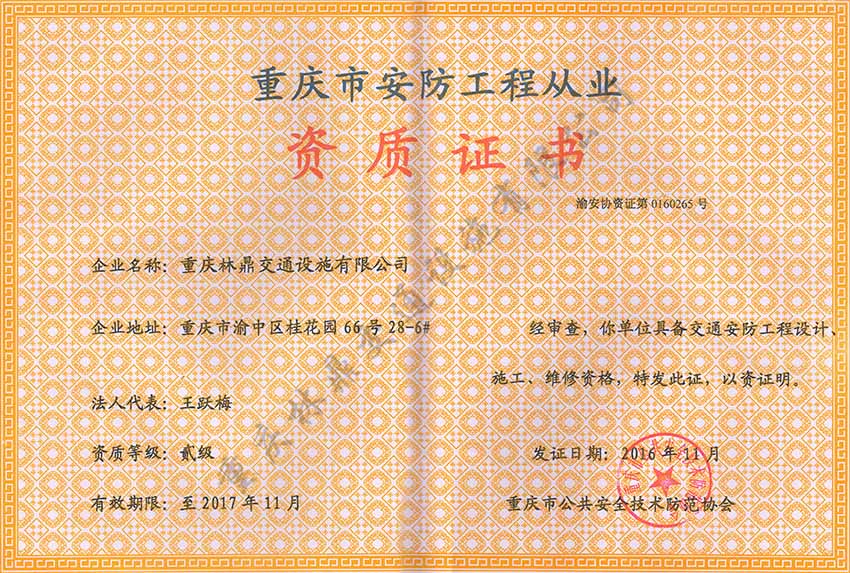 重庆市安防工程从业
资质证书
渝安协资证第0160265号
企业名称：重庆林鼎交通设施有限公司
企业地址：重庆市渝中区桂花园66号28-6#
法人代表：王跃梅
资质等级：贰级
有效期限：至2017年11月
经审查，你单位具备交通安防工程设计、
施工、维修资格，特发此证，以资证明。
发证日期：2016年11月
重庆市公共安全技术防范协会
重庆林鼎交通设施有限公司